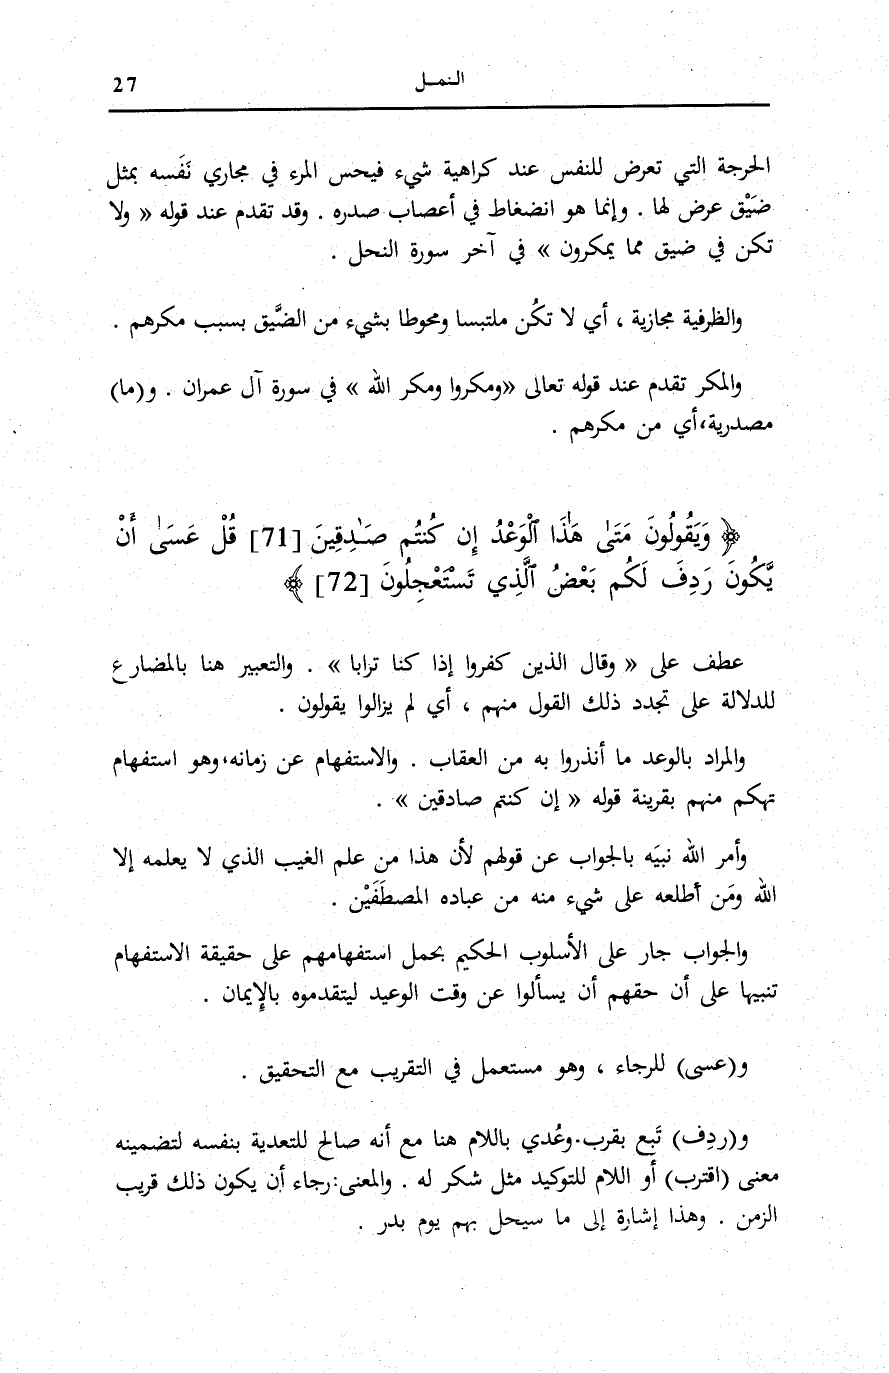 النمـل 27
الحرجة التي تعرض للنفس عند كراهية شيء فيحس المرء في مجاري نَفَسه بمثل
ضَيْق عرض لها . وإنما هو انضغاط في أعصاب صدره . وقد تقدم عند قوله « ولا
تكن في ضيق مما يمكرون » في آخر سورة النحل .
والظرفية مجازية ، أي لا تكُن ملتبسا ومحوطا بشيء من الضَّيق بسبب مكرهم .
والمكر تقدم عند قوله تعالى «ومكروا ومكر الله » في سورة آل عمران . و(ما)
مصدرية،أي من مكرهم .
﴿ وَيَقُولُونَ مَتَىٰ هَٰذَا ٱلْوَعْدُ إِن كُنتُم صَٰدِقِينَ [71] قُلْ عَسَىٰ أَنْ
يَّكُونَ رَدِفَ لَكُم بَعْضُ ٱلَّذِي تَسْتَعْجِلُونَ [72] ﴾
عطف على « وقال الذين كفروا إذا كنا ترابا » . والتعبير هنا بالمضارع
للدلالة على تجدد ذلك القول منهم ، أي لم يزالوا يقولون .
والمراد بالوعد ما أنذروا به من العقاب . والاستفهام عن زمانه،وهو استفهام
تهكم منهم بقرينة قوله « إن كنتم صادقين » .
وأمر الله نبيَه بالجواب عن قولهم لأن هذا من علم الغيب الذي لا يعلمه إلا
الله ومَن أطلعه على شيء منه من عباده المصطَفَيْن .
والجواب جار على الأسلوب الحكيم بحمل استفهامهم على حقيقة الاستفهام
تنبيها على أن حقهم أن يسألوا عن وقت الوعيد ليتقدموه بالإيمان .
و(عسى) للرجاء ، وهو مستعمل في التقريب مع التحقيق .
و(ردِف) تَبِع بقرب.وعُدي باللام هنا مع أنه صالح للتعدية بنفسه لتضمينه
معنى (اقترب) أو اللام للتوكيد مثل شكر له . والمعنى:رجاء أن يكون ذلك قريب
الزمن . وهذا إشارة إلى ما سيحل بهم يوم بدر .